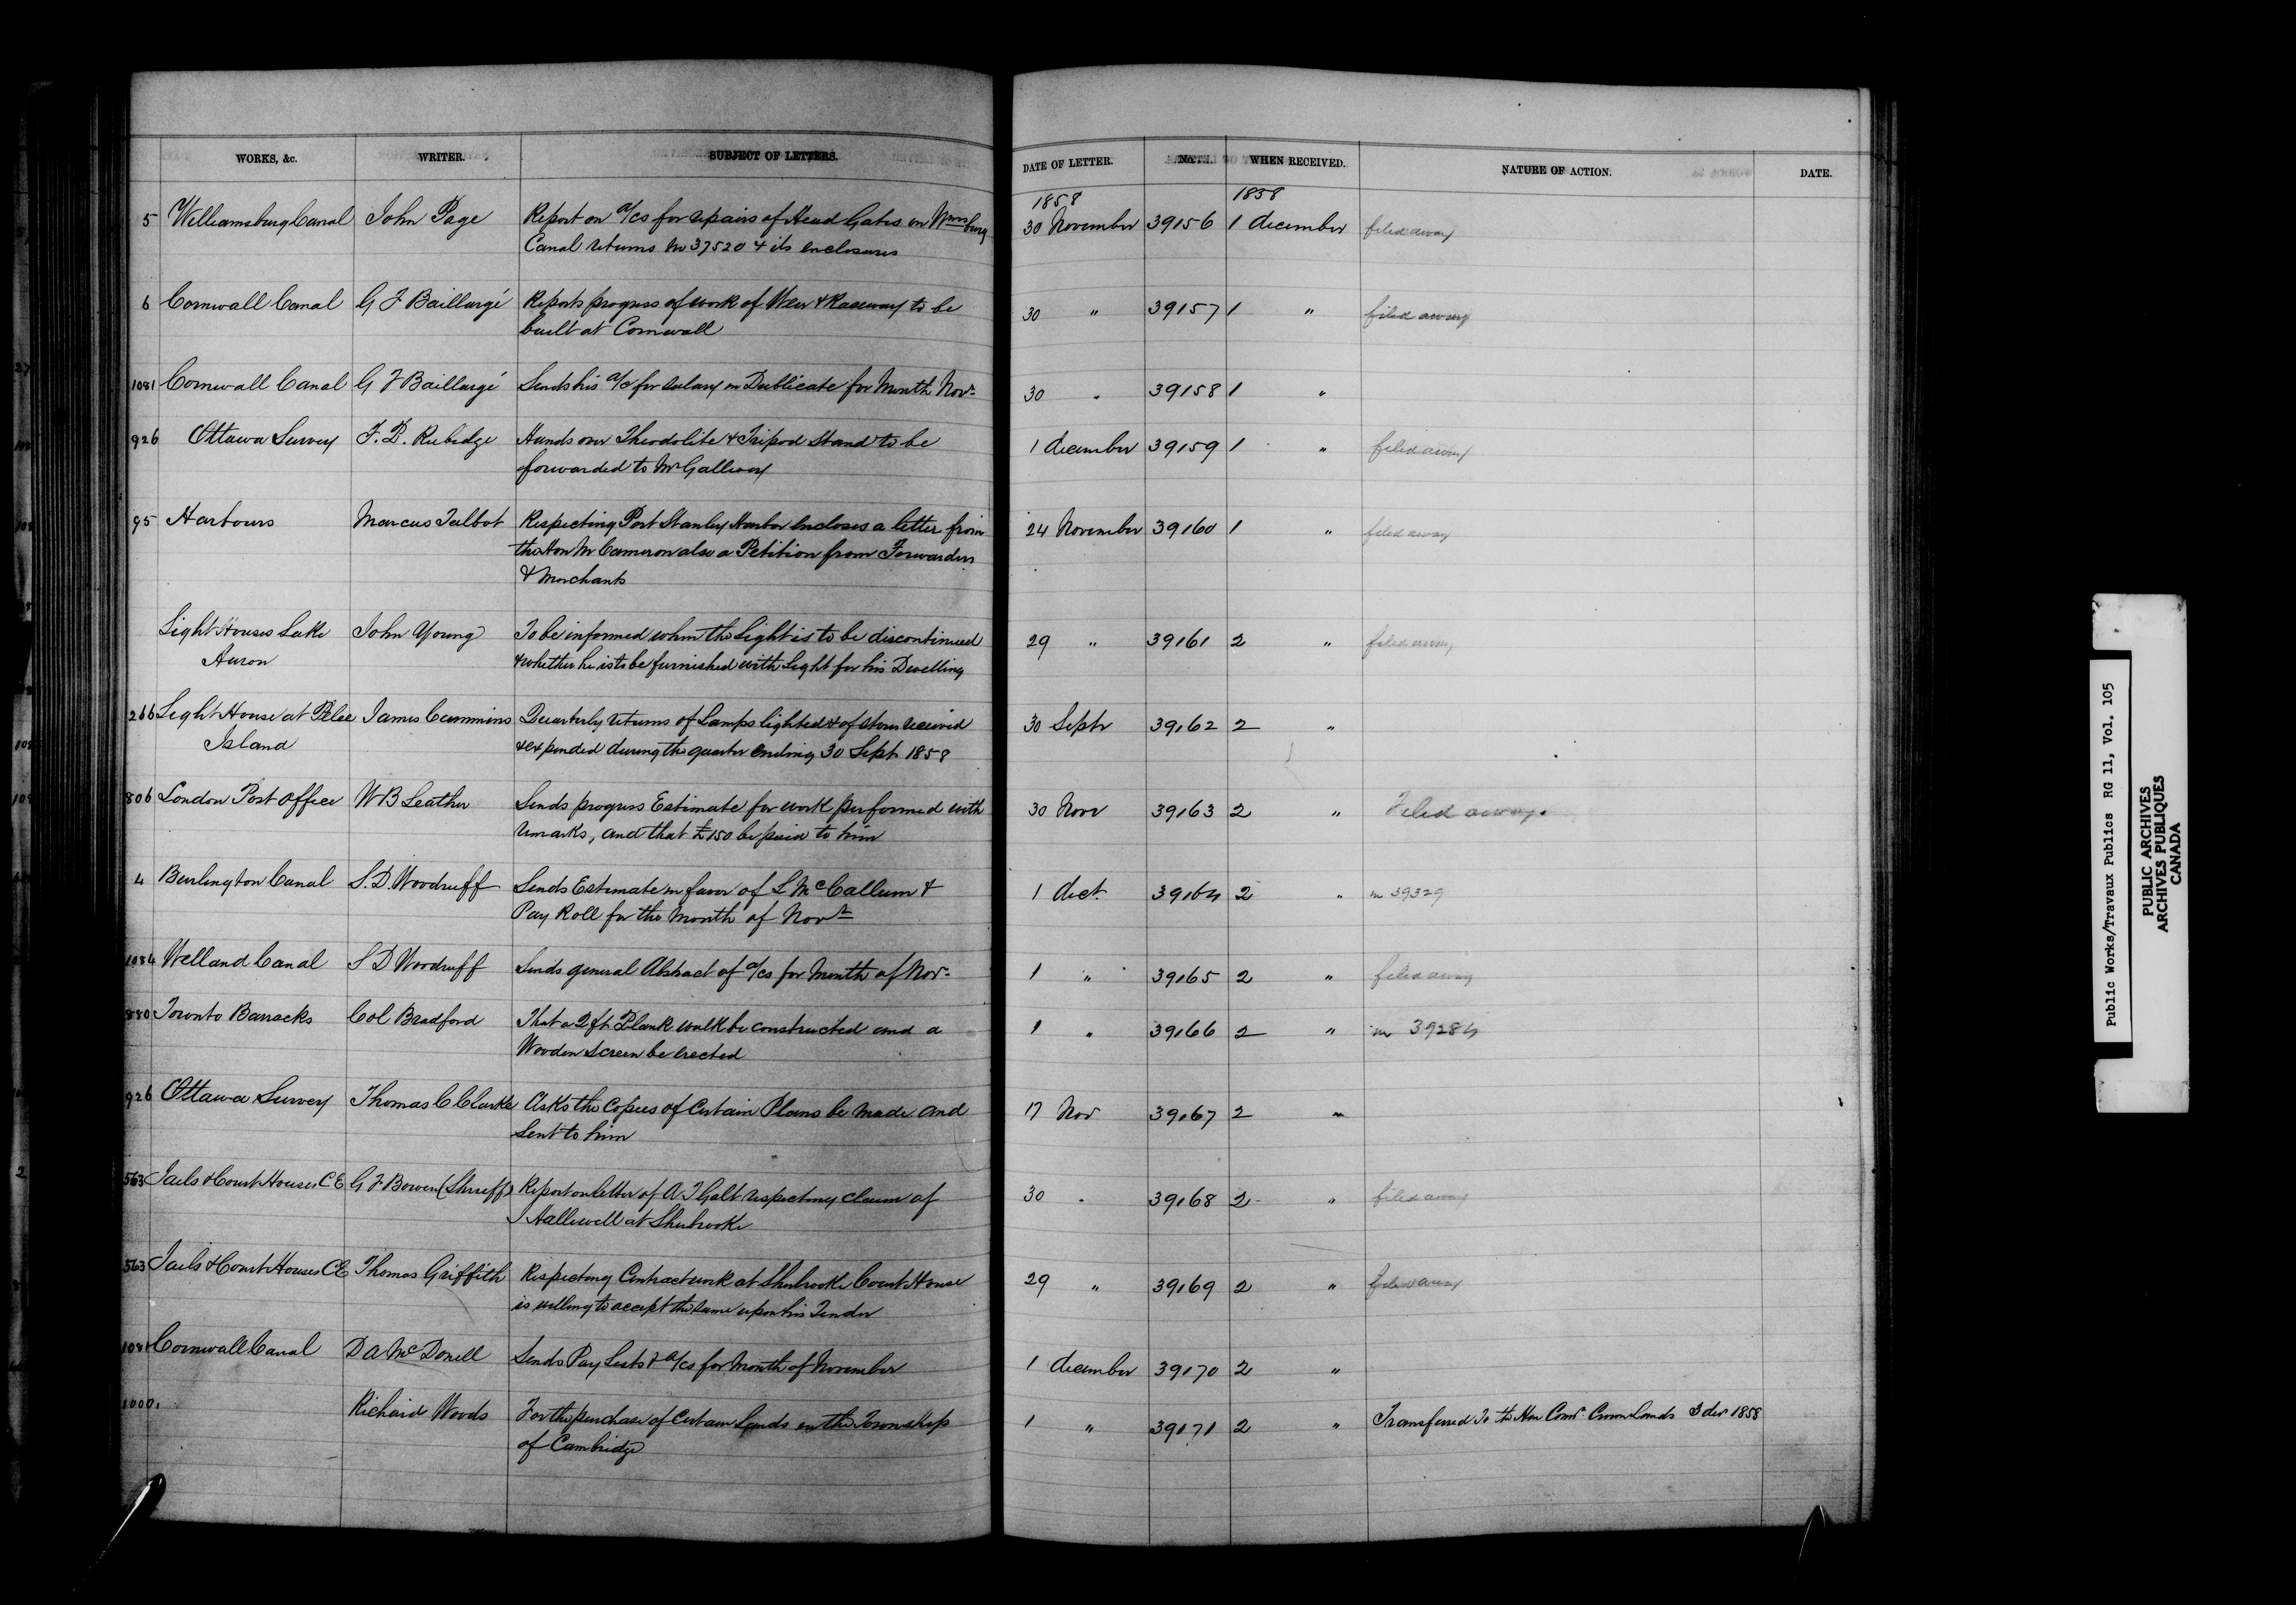 WORKS, &c. WRITER. SUBJECT OF LETTERS. DATE OF LETTER. No. WHEN RECEIVED. NATURE OF ACTION. DATE.
1858 1858
5 Williamsburg Canal John Page Report on a/cs for repairs of Head Gates on Wmsburg 30 November 39156 1 december filed away
Canal returns No 37520 & its enclosures
6 Cornwall Canal G F Baillargé Reports progress of work of Weir & Raceway to be 30 " 39157 1 " filed away
built at Cornwall
1081 Cornwall Canal G F Baillargé Sends his a/c for salary in Dublicate for Month Novr 30 " 39158 1 "
926 Ottawa Survey F. P. Rubidge Hands over Theodolite & Tripod Stand to be 1 december 39159 1 " filed away
forwarded to Mr Gallwey
95 Harbours Marcus Talbot Respecting Port Stanley Harbor encloses a letter from 24 November 39160 1 " filed away
the Hon M Cameron also a Petition from Forwarders
& Merchants
Light Houses Lake John Young To be informed when the Light is to be discontinued 29 " 39161 2 " filed away
Huron & whether he is to be furnished with Light for his Dwelling
266 Light House at Pelee James Cummins Quarterly returns of Lamps lighted & of stores received 30 Septr 39162 2 "
Island & expended during the quarter ending 30 Sept 1858
806 London Post Office W B Leather Sends progress Estimate for work performed with 30 Novr 39163 2 " Filed away.
remarks, and that £150 be paid to him
4 Burlington Canal S. D. Woodruff Sends Estimate in favor of L McCallum & 1 dect. 39164 2 " in 39329
Pay Roll for the Month of Novr
1084 Welland Canal S D Woodruff Sends general Abstract of a/cs for Month of Novr 1 " 39165 2 " filed away
880 Toronto Barracks Col Bradford That a 2 ft Plank walk be constructed and a 1 " 39166 2 " in 39284
Wooden Screen be erected
926 Ottawa Survey Thomas C Clarke Asks tho Copies of Certain Plans be made and 17 Nov 39167 2 "
Sent to him
563 Jails & Court Houses C E G F Bowen (Sheriff) Report on letter of A T Galt respecting claim of 30 " 39168 2 " filed away
J Hallowell at Sherbrooke
563 Jails & Court Houses C E Thomas Griffith Respecting Contract work at Sherbrooke Court House 29 " 39169 2 " filed away
is willing to accept the same upon his Tender
1081 Cornwall Canal D A McDonell Sends Pay Lists & a/cs for Month of November 1 december 39170 2 "
1000 Richard Woods For the purchase of Certain Lands in the Township 1 " 39171 2 " Transferred to the Hon Comr. Crown Lands 3 der 1858
of Cambridge
Public Works/Travaux Publics RG 11, Vol. 105
PUBLIC ARCHIVES
ARCHIVES PUBLIQUES
CANADA